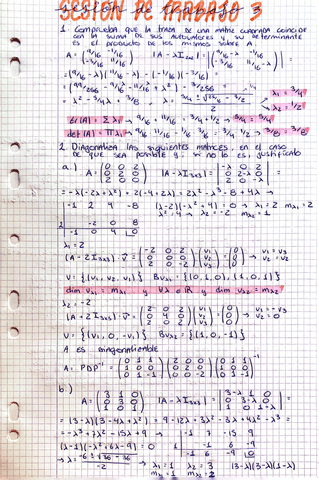 SESIÓN DE TRABAJO 3
1. Comprueba que la traza de una matriz cuadrada coincide
con la suma de sus autovalores y su determinante
es el producto de los mismos sobre A
A = (9/16 -1/16 -3/16 11/16) |A-λI2x2| = |9/16-λ -1/16 -3/16 11/16-λ| =
= (9/16-λ)(11/16-λ) - (-1/16)(-3/16) =
= 99/256 - 9/16λ - 11/16λ + λ² - 3/256
= λ² - 5/4λ + 3/8 , λ = λ1 = 3/4 λ2 = 1/2
tr(A) = Σλi → 9/16 + 11/16 = 3/4 + 1/2 → 5/4 = 5/4
det(A) = Πλi → 9/16 11/16 - 1/16 3/16 = 3/4 1/2 → 3/8 = 3/8
2. Diagonaliza las siguientes matrices, en el caso
de que sea posible y, si no lo es, justifícalo
a.) A = (0 0 2 0 2 0 2 0 0) |A-λI3x3| = |-λ 0 2 0 2-λ 0 2 0 -λ| =
= -λ(-2λ+λ²) + 2(-4+2λ) = 2λ² - λ³ - 8 + 4λ →
-1 2 4 -8 (λ-2)(-λ²+4) = 0 → λ1 = 2 mλ1 = 2
2 -2 0 8 λ² = 4 → λ2 = -2 mλ2 = 1
-1 0 4 0
λ1 = 2
(A-2I3x3)·v = (-2 0 2 0 0 0 2 0 -2)(v1 v2 v3) = (0 0 0) → v1 = v3 v2 = v2
V = {(v1, v2, v1)} Bvλ1 = {(0,1,0), (1,0,1)}
dim vλ1 = mλ1 y ∀λ ∈ ℝ y dim vλ2 = mλ2
λ2 = -2
(A+2I3x3)·v = (2 0 2 0 4 0 2 0 2)(v1 v2 v3) = (0 0 0) → v1 = -v3 v2 = 0
V = {(v1, 0, -v1)} Bvλ2 = {(1,0,-1)}
A es diagonalizable
A = PDP⁻¹ = (0 1 1 1 0 0 0 1 -1)(2 0 0 0 2 0 0 0 -2)(0 1 1 1 0 0 0 1 -1)⁻¹
b.) A = (3 1 0 0 3 0 1 0 1) |A-λI3x3| = |3-λ 1 0 0 3-λ 0 1 0 1-λ| =
= (3-λ)(3-4λ+λ²) = 9-12λ+3λ²-3λ+4λ²-λ³ =
= -λ³+7λ²-15λ+9 → -1 7 -15 9
(λ-1)(-λ²+6λ-9) = 0 1 -1 6 -9
-1 6 -9 0
→ λ = -6±√36-36 / -2 → λ1 = 1 λ2 = 3 (3-λ)(3-λ)(1-λ)
mλ1 = 1 mλ2 = 2